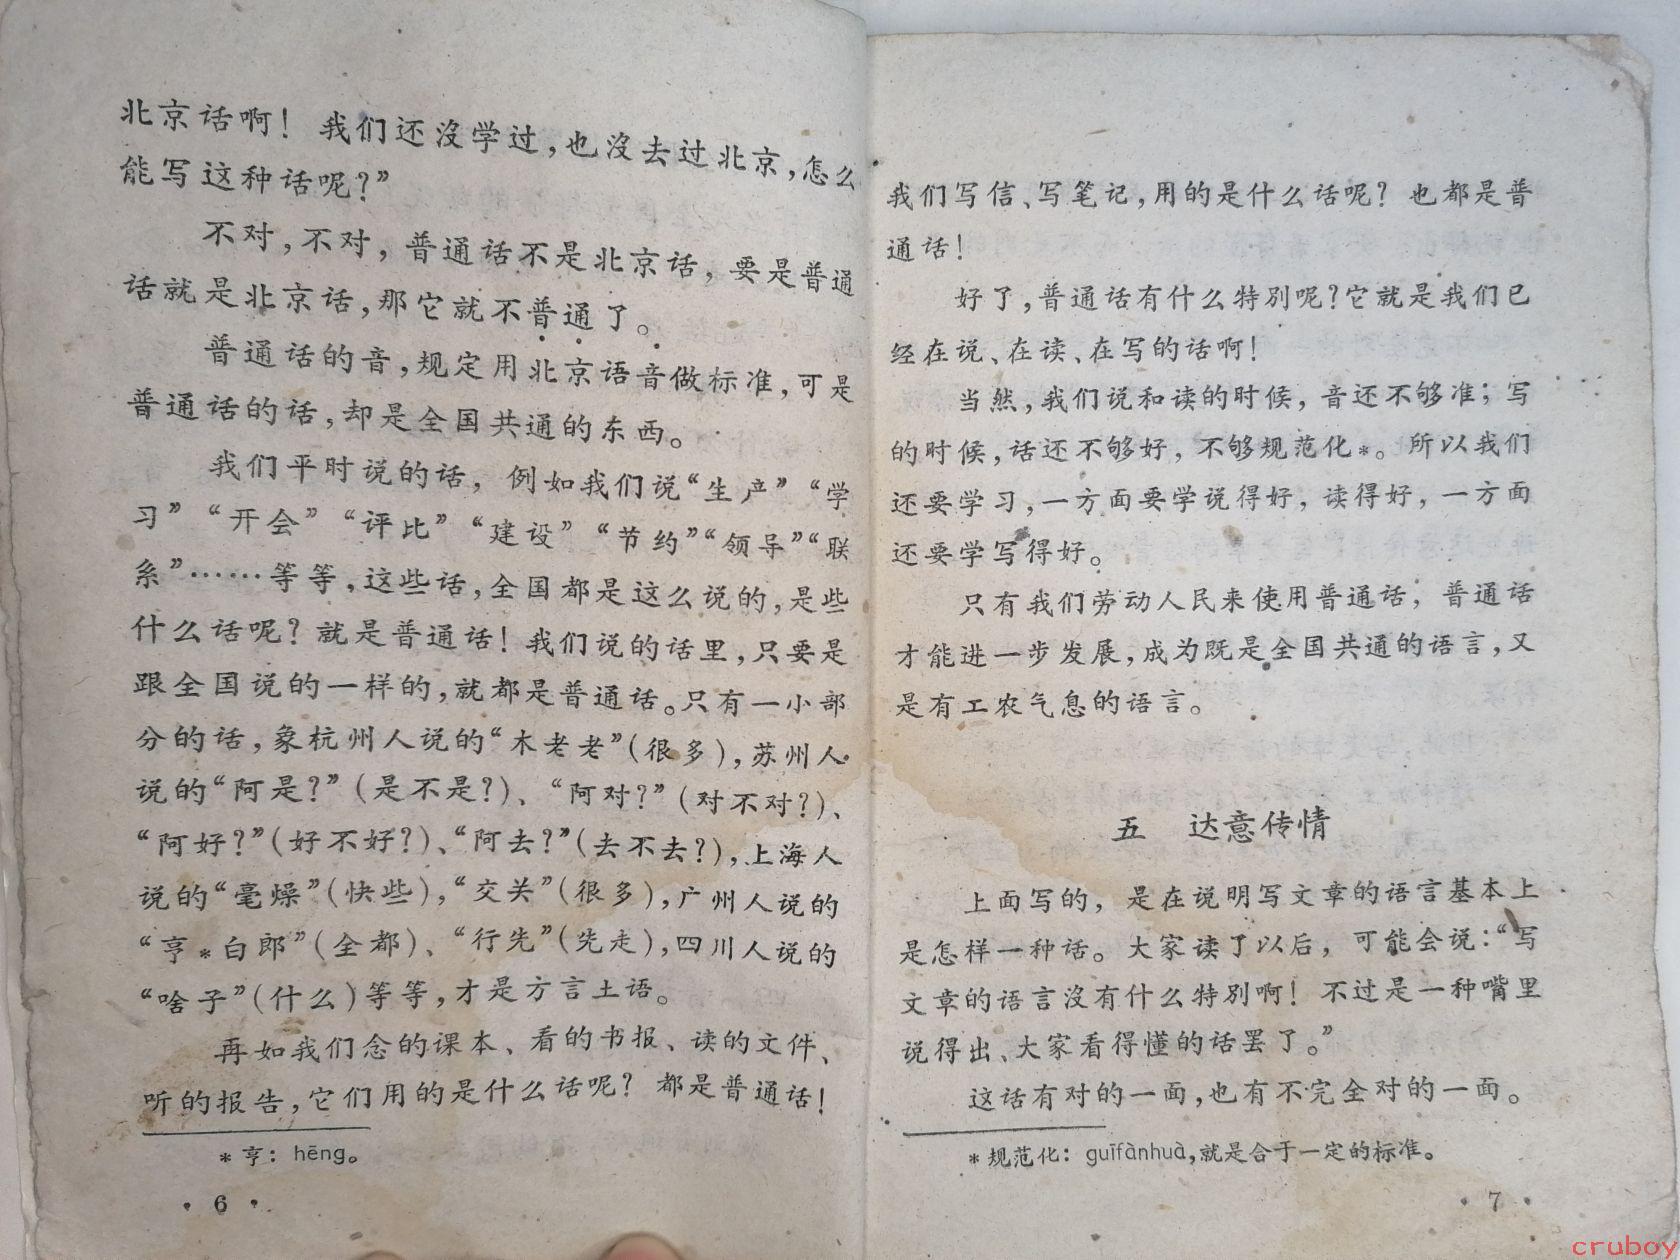 北京话啊！我们还沒学过，也沒去过北京，怎么
能写这种话呢？”
不对，不对，普通话不是北京话，要是普通
话就是北京话，那它就不普通了。
普通话的音，规定用北京语音做标准，可是
普通话的话，却是全国共通的东西。
我们平时说的话，例如我们说“生产”“学
习”“开会”“评比”“建设”“节约”“领导”“联
系”……等等，这些话，全国都是这么说的，是些
什么话呢？就是普通话！我们说的话里，只要是
跟全国说的一样的，就都是普通话。只有一小部
分的话，象杭州人说的“木老老”（很多），苏州人
说的“阿是？”（是不是？）、“阿对？”（对不对？）、
“阿好？”（好不好？）、“阿去？”（去不去？），上海人
说的“毫燥”（快些），“交关”（很多），广州人说的
“亨*白郎”（全都）、“行先”（先走），四川人说的
“啥子”（什么）等等，才是方言土语。
再如我们念的课本、看的书报、读的文件、
听的报告，它们用的是什么话呢？都是普通话！
*亨：hēng。
·6·
我们写信、写笔记，用的是什么话呢？也都是普
通话！
好了，普通话有什么特別呢？它就是我们已
经在说、在读、在写的话啊！
当然，我们说和读的时候，音还不够准；写
的时候，话还不够好，不够规范化*。所以我们
还要学习，一方面要学说得好，读得好，一方面
还要学写得好。
只有我们劳动人民来使用普通话，普通话
才能进一步发展，成为既是全国共通的语言，又
是有工农气息的语言。
五 达意传情
上面写的，是在说明写文章的语言基本上
是怎样一种话。大家读了以后，可能会说：“写
文章的语言沒有什么特別啊！不过是一种嘴里
说得出、大家看得懂的话罢了。”
这话有对的一面，也有不完全对的一面。
*规范化：guīfànhuà，就是合于一定的标准。
·7·
cruboy